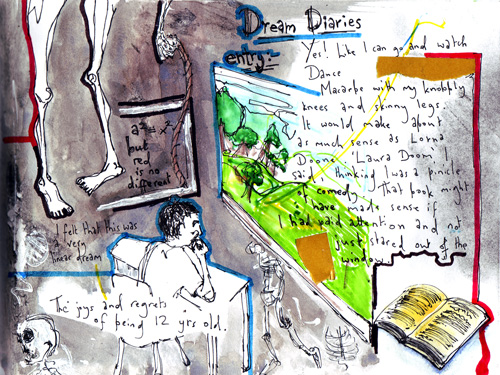 Dream Diaries
entry:
Yes! Like I can go and watch
Dance
Macarbe with my knobbly
knees and skinny legs.
It would make about
as much sense as Lorna
Doone. 'Laura Doom' I
said thinking I was a pinicle
of comedy. That book might
have made sense if
I had paid attention and not
just stared out of the
window
a² = x²
but
red
is no
different
I felt that this was
a very
linear dream
The joys and regrets
of being 12 yrs old.